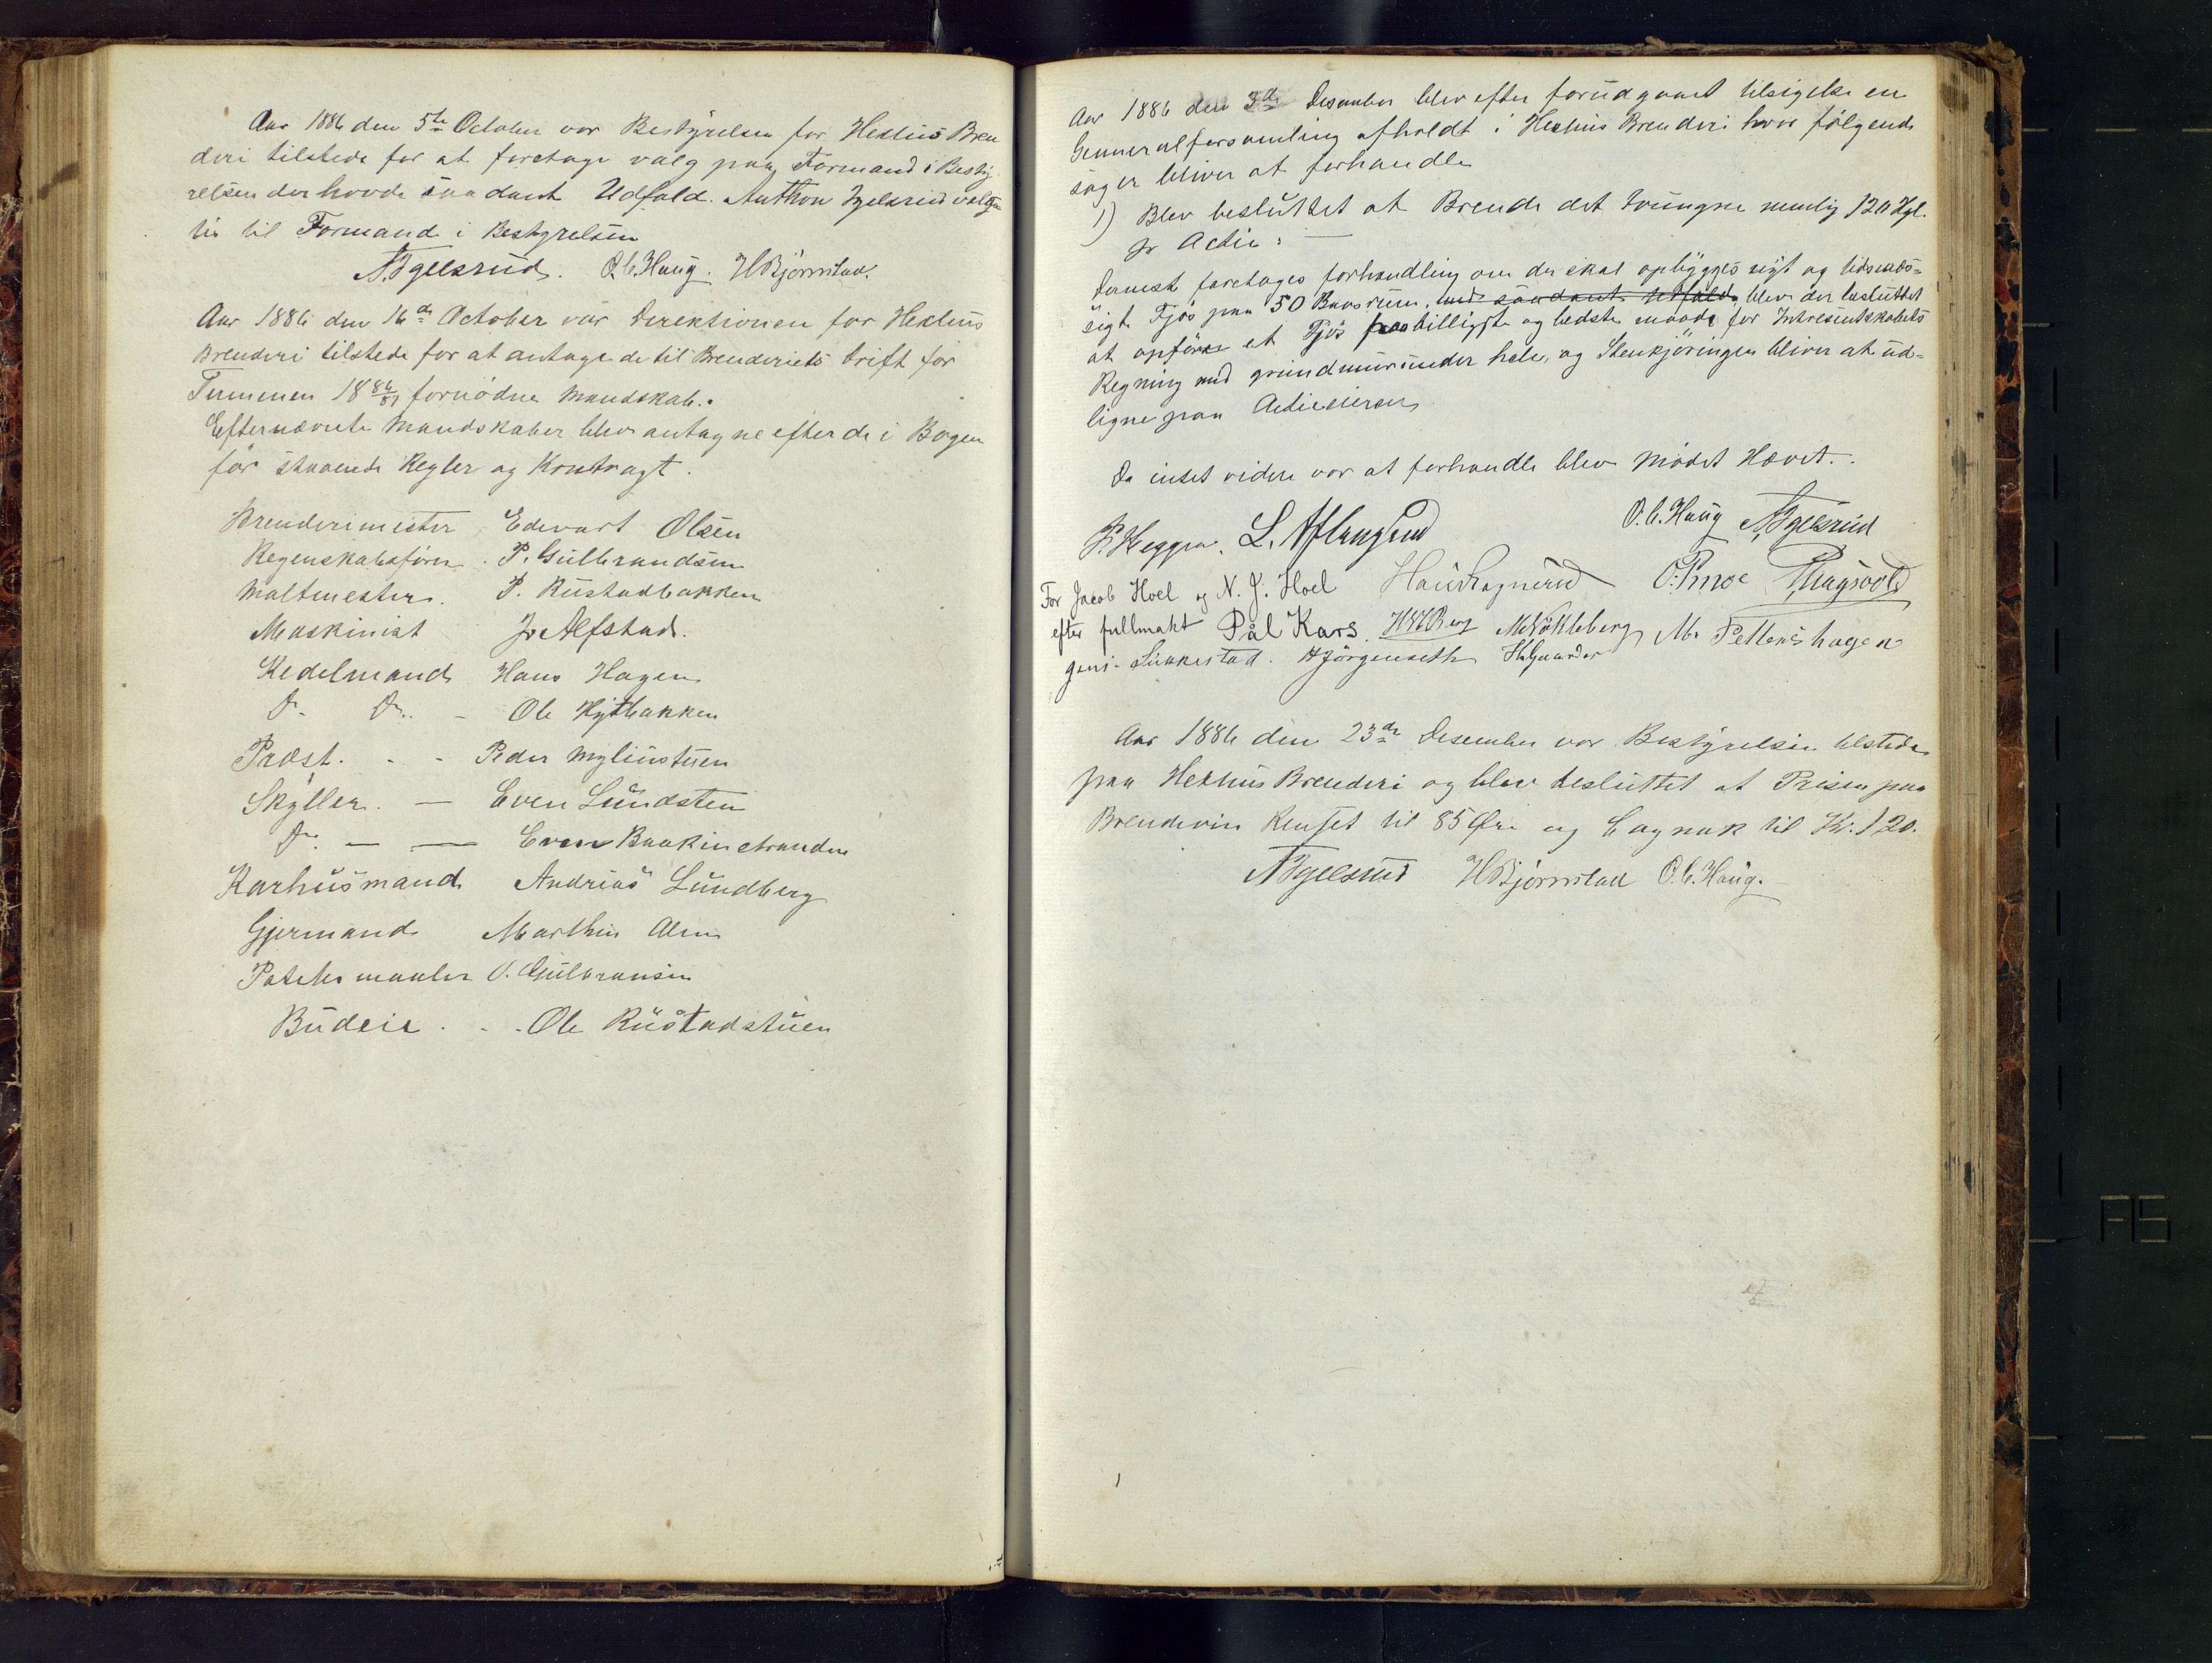 Aar 1886 den 5te October var Bestÿrelsen for Hexhus Bren
deri tilstede for at foretage valg paa Formand i Besty
relsen der havde saadant Udfald. Anthon Igelsrud valg
tes til Formand i Bestyrelsen
AIgelsrud. O.C. Haug. HBjørnstad.
Aar 1886 den 16de October var Direktionen for Hexhus
Brenderi tilstede for at antage de til Brenderiets drift for
Terminen 1886/87 fornødne Mandskab.
Efternævnte Mandskaber blev antagne efter de i Bogen
før staaende Regler og Kontragt.
Brenderimester Edevart Olsen
Regenskabsfører. P. Gulbrandsen
Maltmester. P. Rustadbakken
Maskinist Jo Alfstad.
Kedelmand Hans Hagen
Do. Do. - Ole Hytbakken
Præst. - - Peder Myliustuen
Skÿller. — Even Lundsten
Do. — — Even Baakinstranden
Karhusmand Andreas Lundberg
Gjermand Marthin Alm
Potetesmaaler O. Gulbransen
Budeie . . - Ole Rustadstuen
Aar 1886 den 3de Desember blev efter forudgaaet tilsigelse en
Genneralforsamling afholdt i Hexhus Brenderi hvor følgende
sager bliver at forhandle
1) Blev besluttet at Brende det tvungne nemlig 120 Hgl.
pr Actie: —
Dernest foretages forhandling om der skal opbÿgges nÿt og tidsmæs-
sigt Fjøs paa 50 Baasrum, med saadant Utfald, blev der besluttet
at opføre et Fjøs paa billigste og bedste maade for Intresentskabets
Regning med grundmur under hele, og Stenkjøringen bliver at ud-
ligne paa Actieeieren
Da intet videre var at forhandle blev Mødet Hævet.
O.C. Haug AIgelsrud
P. Heggen. L.
For Jacob Hoel og N. J. Hoel O. Prmoe
efter fullmakt Pål Kars. HHBerg M. Nøkleberg M. Pettershagen
Jens. Sukkestad. HJørgenseth HGaarder
Aar 1886 den 23de Desember var Bestÿrelsen tilstede
paa Hexhus Brenderi og blev besluttet at Prisen paa
Brendevin Renset til 85 Øre og Cagnak til Kr. 120.
AIgelsrud HBjørnstad O.C. Haug.